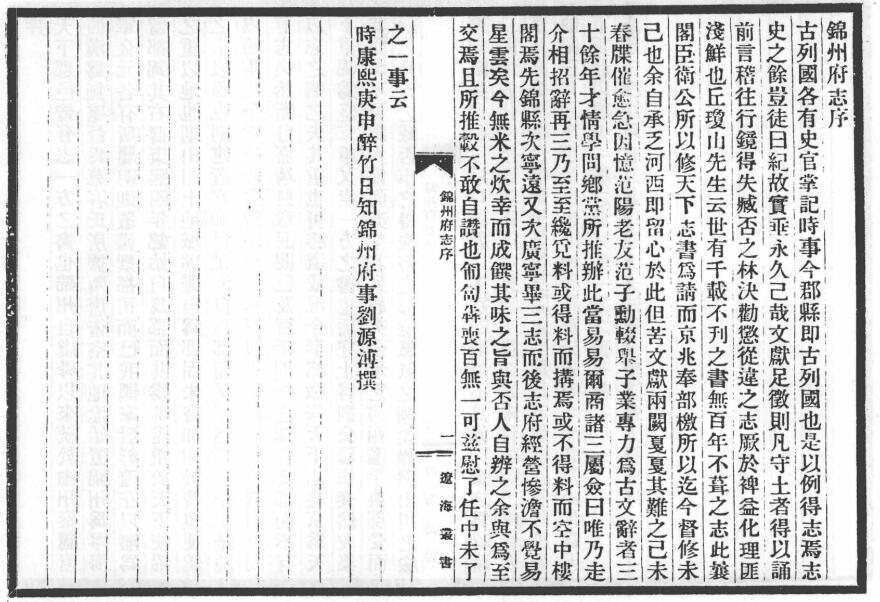 錦州府志序
古列國各有史官掌記時事今郡縣即古列國也是以例得志焉志
史之餘豈徒曰紀故實垂永久己哉文獻足徵則凡守土者得以誦
前言稽往行鏡得失臧否之林決勸懲從違之志厥於裨益化理匪
淺鮮也丘瓊山先生云世有千載不刊之書無百年不葺之志此曩
閣臣衛公所以修天下志書爲請而京兆奉部檄所以迄今督修未
己也余自承乏河西即留心於此但苦文獻兩闕戛戛其難之己未
春牒催愈急因憶范陽老友范子勳輟舉子業專力爲古文辭者三
十餘年才情學問鄉黨所推辦此當易易爾商諸三屬僉曰唯乃走
介相招辭再三乃至至纔覓料或得料而搆焉或不得料而空中樓
閣焉先錦縣次寧遠又次廣寧畢三志而後志府經營慘澹不覺易
星雲矣今無米之炊幸而成饌其味之旨與否人自辨之余與爲至
交焉且所推轂不敢自讚也匍匐犇喪百無一可兹慰了任中未了
錦州府志序
一
遼海叢書
之一事云
時康熙庚申醉竹日知錦州府事劉源溥撰